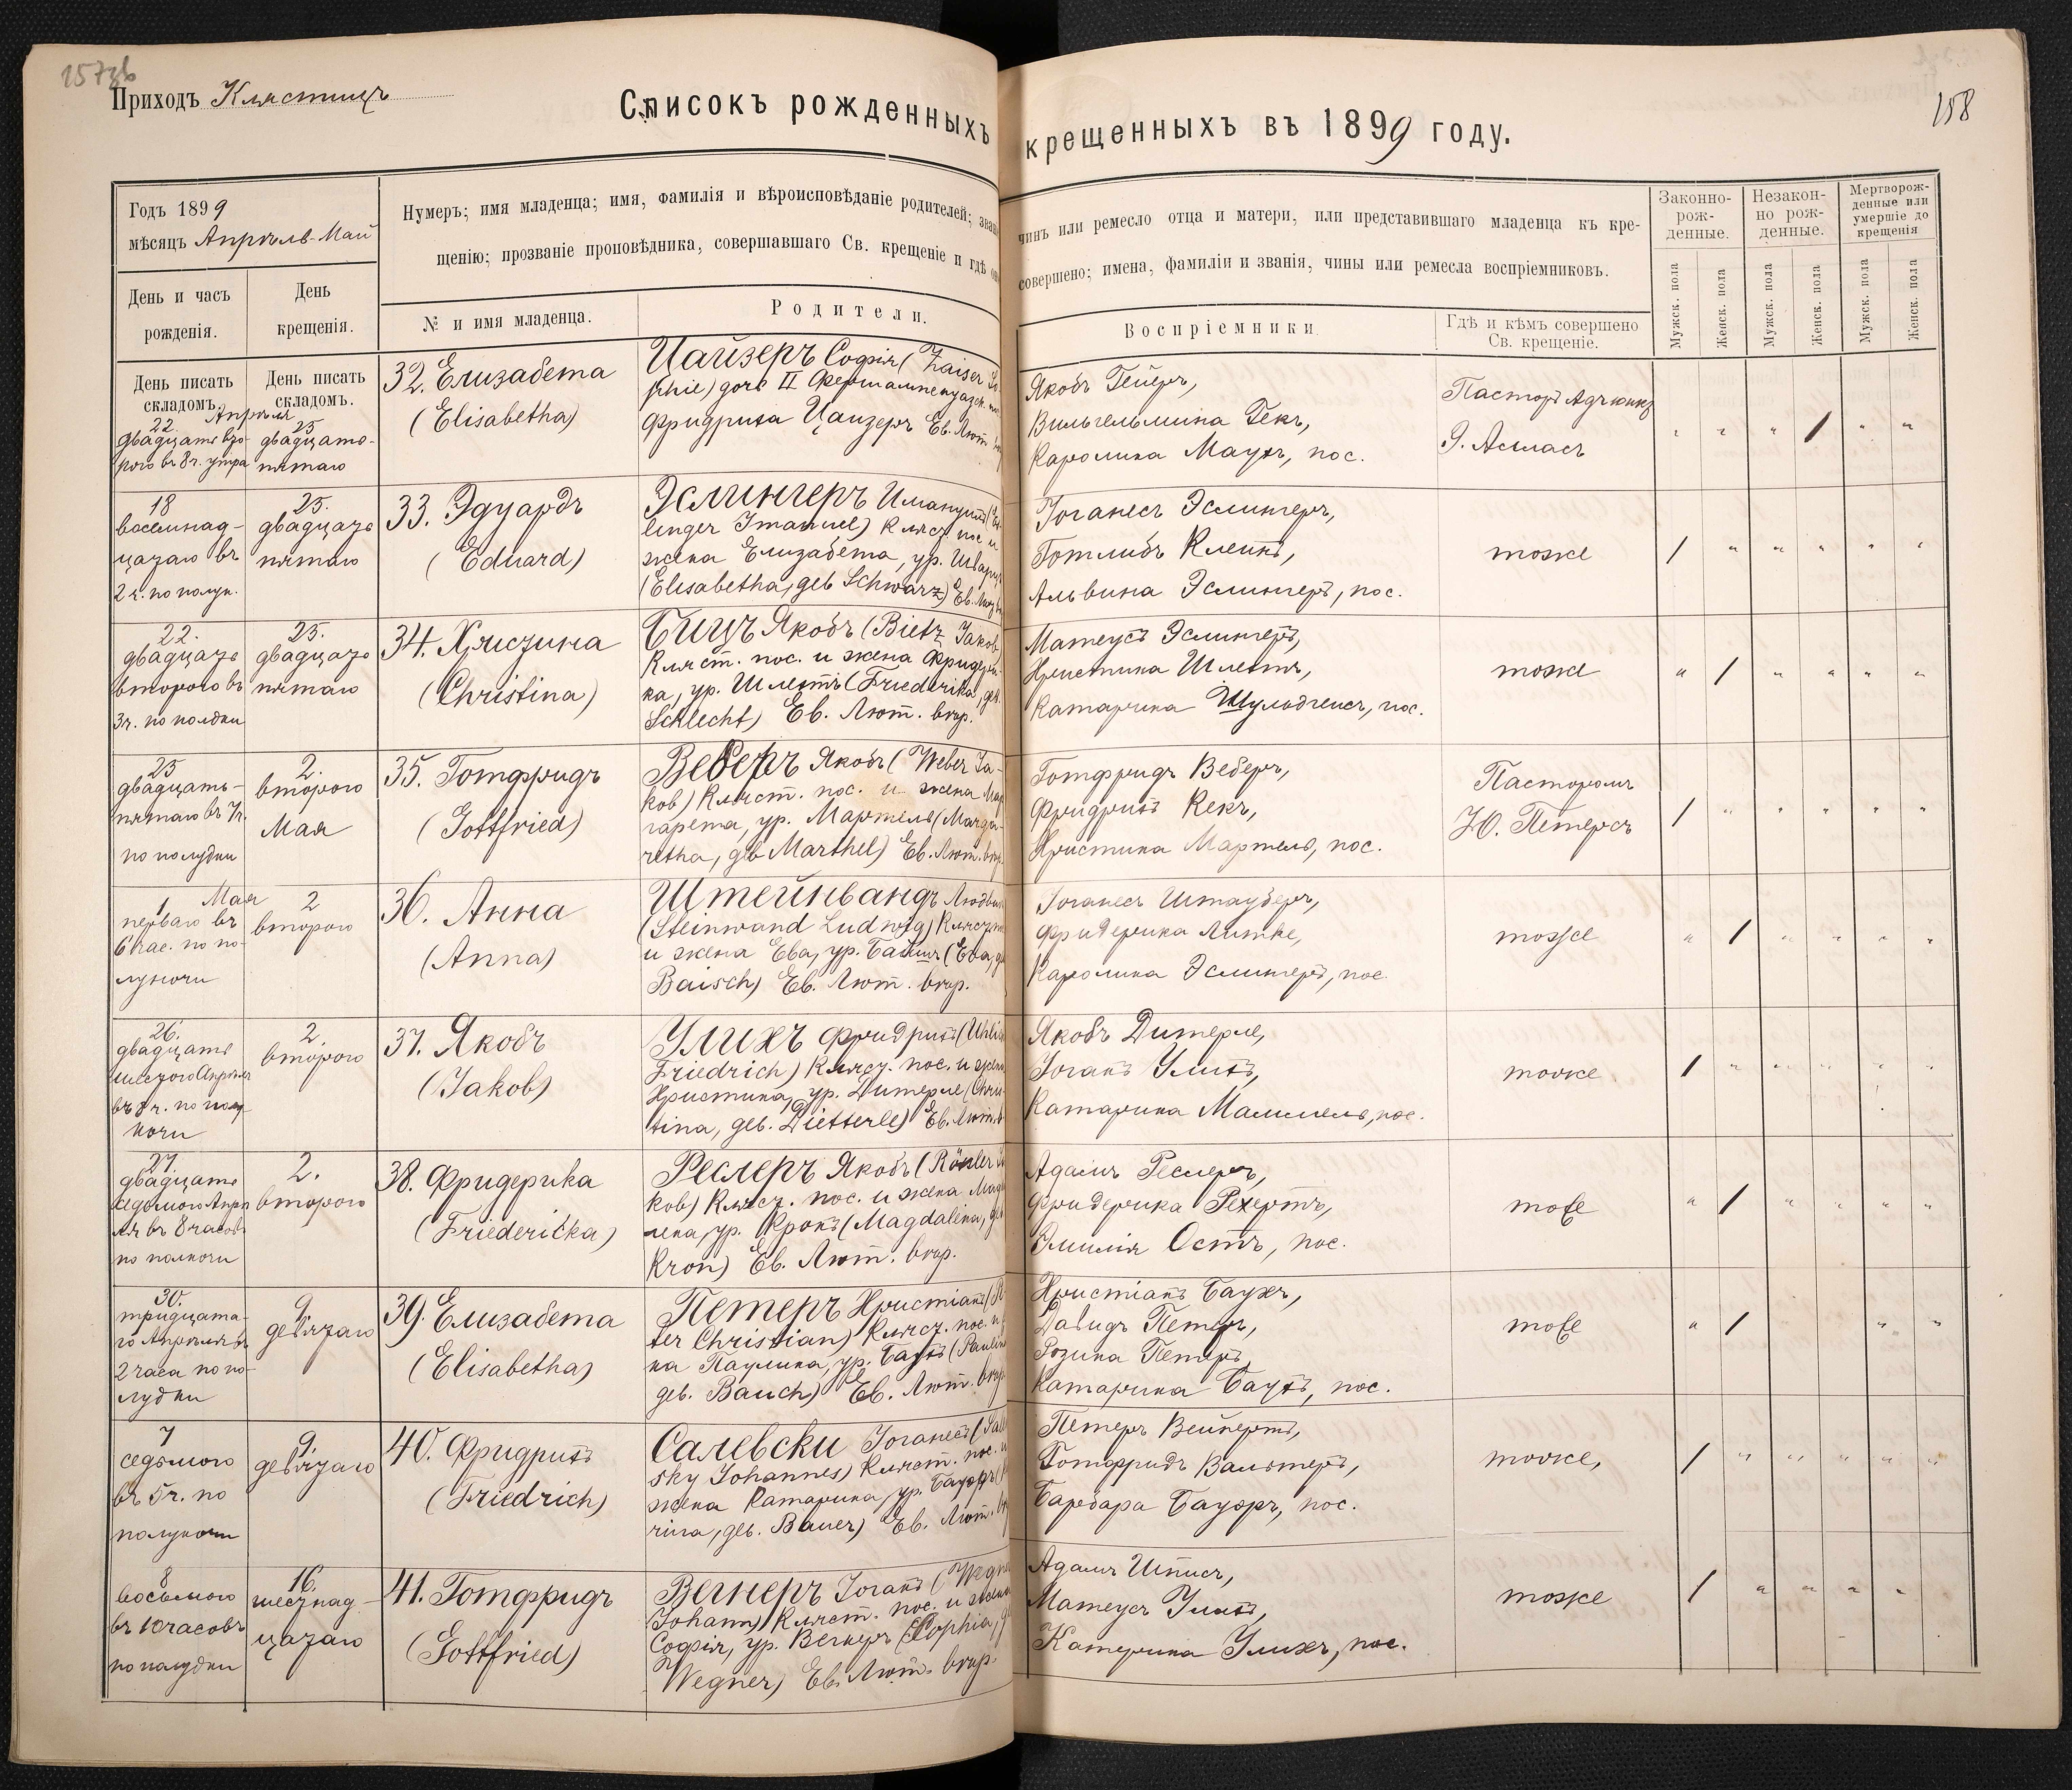 Приходъ Клястицъ
Списокъ рожденныхъ
Годъ 1899
мѣсяцъ Апрѣль-Май
Нумеръ; имя младенца; имя, фамилія и вѣроисповѣданіе родителей;
щенію; прозваніе проповѣдника, совершавшаго Св. крещеніе и гдѣ
День и часъ
рожденія.
День
крещенія.
№ и имя младенца.
Родители.
День писать
складомъ.
День писать
складомъ.
Апрѣля
22.
двадцать вто-
рого въ 8 ч. утра
25
двадцать-
пятаго
32. Елизабета
(Elisabetha)
Цайзеръ Софія (Zaiser So-
phie) дочь II Фершампенуазск.
Фридриха Цайзеръ Ев. Лют.
18
восемнад-
цатаго въ
2 ч. по полун.
25.
двадцать
пятаго
33. Эдуардъ
(Eduard)
Эслингеръ Имануилъ
linger Imanuel) Кляст. пос. и
жена Елизабета, ур. Шварцъ
(Elisabetha, geb Schwarz) Ев. Лют.
22.
двадцать
второго въ
3 ч. по полдни
25.
двадцать
пятаго
34. Христина
(Christina)
Бицъ Якобъ (Bietz Jakob
Кляст. пос. и жена Фридери-
ка, ур. Шлехтъ (Friederika, geb.
Schlecht) Ев. Лют. вѣр.
25
двадцать-
пятаго въ 7 ч.
по полудни
2.
второго
Мая
35. Готфридъ
(Gottfried)
Веберъ Якобъ (Weber Ja-
kob) Кляст. пос. и жена Мар
гарета, ур. Мартель (Marga-
retha, geb Marthel) Ев. Лют. вѣр.
Мая
1
перваго въ
6 час. по по-
луночи
2
второго
36. Анна
(Anna)
Штейнвандъ Людви
(Steinwand Ludwig) Кляст.
и жена Ева, ур. Байшъ (Eva,
Baisch) Ев. Лют. вѣр.
26.
двадцать
шестого Апрѣля
въ 8 ч. по полу
ночи
2
второго
37. Якобъ
(Jakob)
Улихъ Фридрихъ (Uhli
Friedrich) Кляст. пос. и жена
Христина, ур. Дитерле (Chris-
tina, geb. Dietterle) Ев. Лют.
27.
двадцать
седьмого Апрѣ
ля въ 8 часовъ
по полночи
2.
второго
38. Фридерика
(Friedericka)
Реслеръ Якобъ (Rösler Ja
kob) Кляст. пос. и жена Магда
лена, ур. Кронъ (Magdalena,
Kron) Ев. Лют. вѣр.
30.
тридцата-
го Апрѣля въ
2 часа по по-
лудни
9.
девятаго
39. Елизабета
(Elisabetha)
Петеръ Христіанъ (Pe
ter Christian) Кляст. пос. и
на Паулина, ур. Баухъ (Paulin
geb. Bauch) Ев. Лют. вѣр
7
седьмого
въ 5 ч. по
полуночи
9.
девятаго
40. Фридрихъ
(Friedrich)
Салевски Іоганесъ (Sale
sky Johannes) Кляст. пос. и
жена Катарина, ур. Бауэръ
rina, geb. Bauer) Ев. Лют.
8
восьмого
въ 10 часовъ
по полудни
16.
шестнад-
цатаго
41. Готфридъ
(Gottfried)
Вегнеръ Іоганъ (Wegne
Johann) Кляст. пос. и жена
Софія, ур. Вегнеръ (Sophia,
Wegner) Ев. Лют. вѣр.
158
крещенныхъ въ 1899 году.
чинъ или ремесло отца и матери, или представившаго младенца къ кре-
совершено; имена, фамиліи и званія, чины или ремесла воспріемниковъ.
Воспріемники
Гдѣ и кѣмъ совершено
Св. крещеніе.
Законно-
рож-
денные.
Незакон-
но рож-
денные.
Мертворож-
денные или
умершіе до
крещенія
Мужск. пола
Женск. пола
Мужск. пола
Женск. пола
Мужск. пола
Женск. пола
Якобъ Гейеръ,
Вильгельмина Гекъ,
Каролина Маухъ, пос.
Пасторъ Адъюнкт
Э. Асмасъ
Іоганесъ Эслингеръ,
Готлибъ Клейнъ,
Альвина Эслингеръ, пос.
тоже
Матеусъ Эслингеръ,
Христина Шлехтъ,
Катарина Шульдгейсъ, пос.
тоже
Готфридъ Веберъ,
Фридрихъ Кекъ,
Христина Мартель, пос.
Пасторомъ
Ю. Петерсъ
Іоганесъ Штауберъ,
Фридерика Литке,
Каролина Эслингеръ, пос
тоже
Якобъ Дитерле,
Іоганъ Улихъ,
Катарина Маммель, пос.
тоже
Адамъ Реслеръ,
Фридерика Рехертъ,
Эмилія Остъ, пос.
тоже
Христіанъ Баухъ,
Давидъ Петеръ,
Розина Петеръ,
Катарина Баухъ, пос.
тоже
Петеръ Вейнертъ,
Готфридъ Вальтеръ,
Барбара Бауэръ, пос.
тоже,
Адамъ Шписъ,
Матеусъ Улихъ,
Катерина Улихъ, пос.
тоже